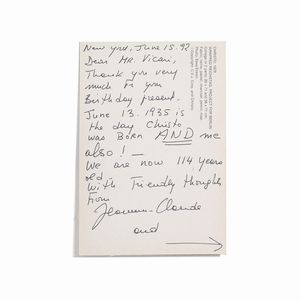 New York, June 15. 92
Dear MR. Vicari,
Thank you very
much for your
Birthday present.
June 13. 1935 is
the day Christo
was Born AND me
also! —
We are now 114 years
old —
With Friendly thoughts
From
Jeanne-Claude
and
CHRISTO, 1978
WRAPPED REICHSTAG, PROJECT FOR BERLIN